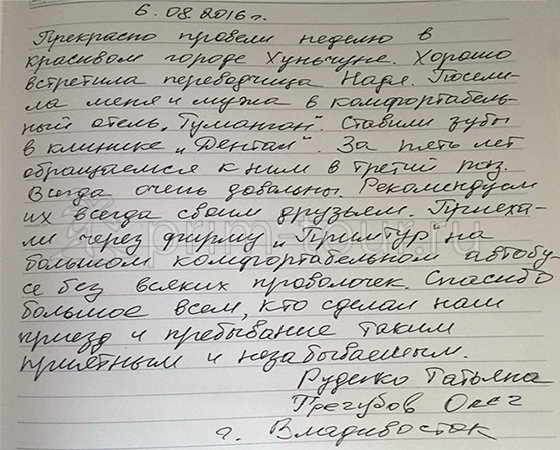 6.08.2016г.
Прекрасно провели неделю в
красивом городе Хуньчуне. Хорошо
встретила переводчица Надя. Посели-
ла меня и мужа в комфортабель-
ный отель „Туманган". Ставили зубы
в клинике „Дентал". За пять лет
обращаемся к ним в третий раз.
Всегда очень довольны. Рекомендуем
их всегда своим друзьям. Приеха-
ли через фирму „Примтур" на
большом комфортабельном автобу-
се без всяких проволочек. Спасибо
большое всем, кто сделал наш
приезд и пребывание таким
приятным и незабываемым.
Руденко Татьяна
Трегубов Олег
г. Владивосток